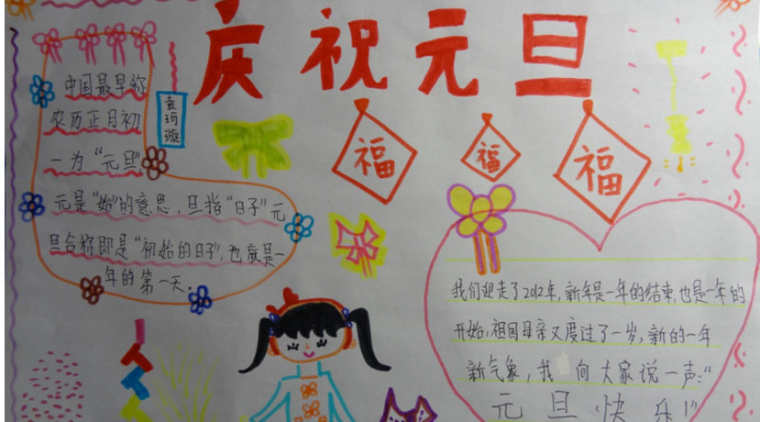 庆祝元旦
中国最早称
农历正月初
一为“元旦”
元是“始”的意思,旦指“日子”元
旦合称即是“初始的日子”,也就是一
年的第一天.
福
福
福
我们迎走了2012年,新年是一年的结束,也是一年的
开始,祖国母亲又度过了一岁,新的一年
新气象,我向大家说一声:“
元旦快乐!”